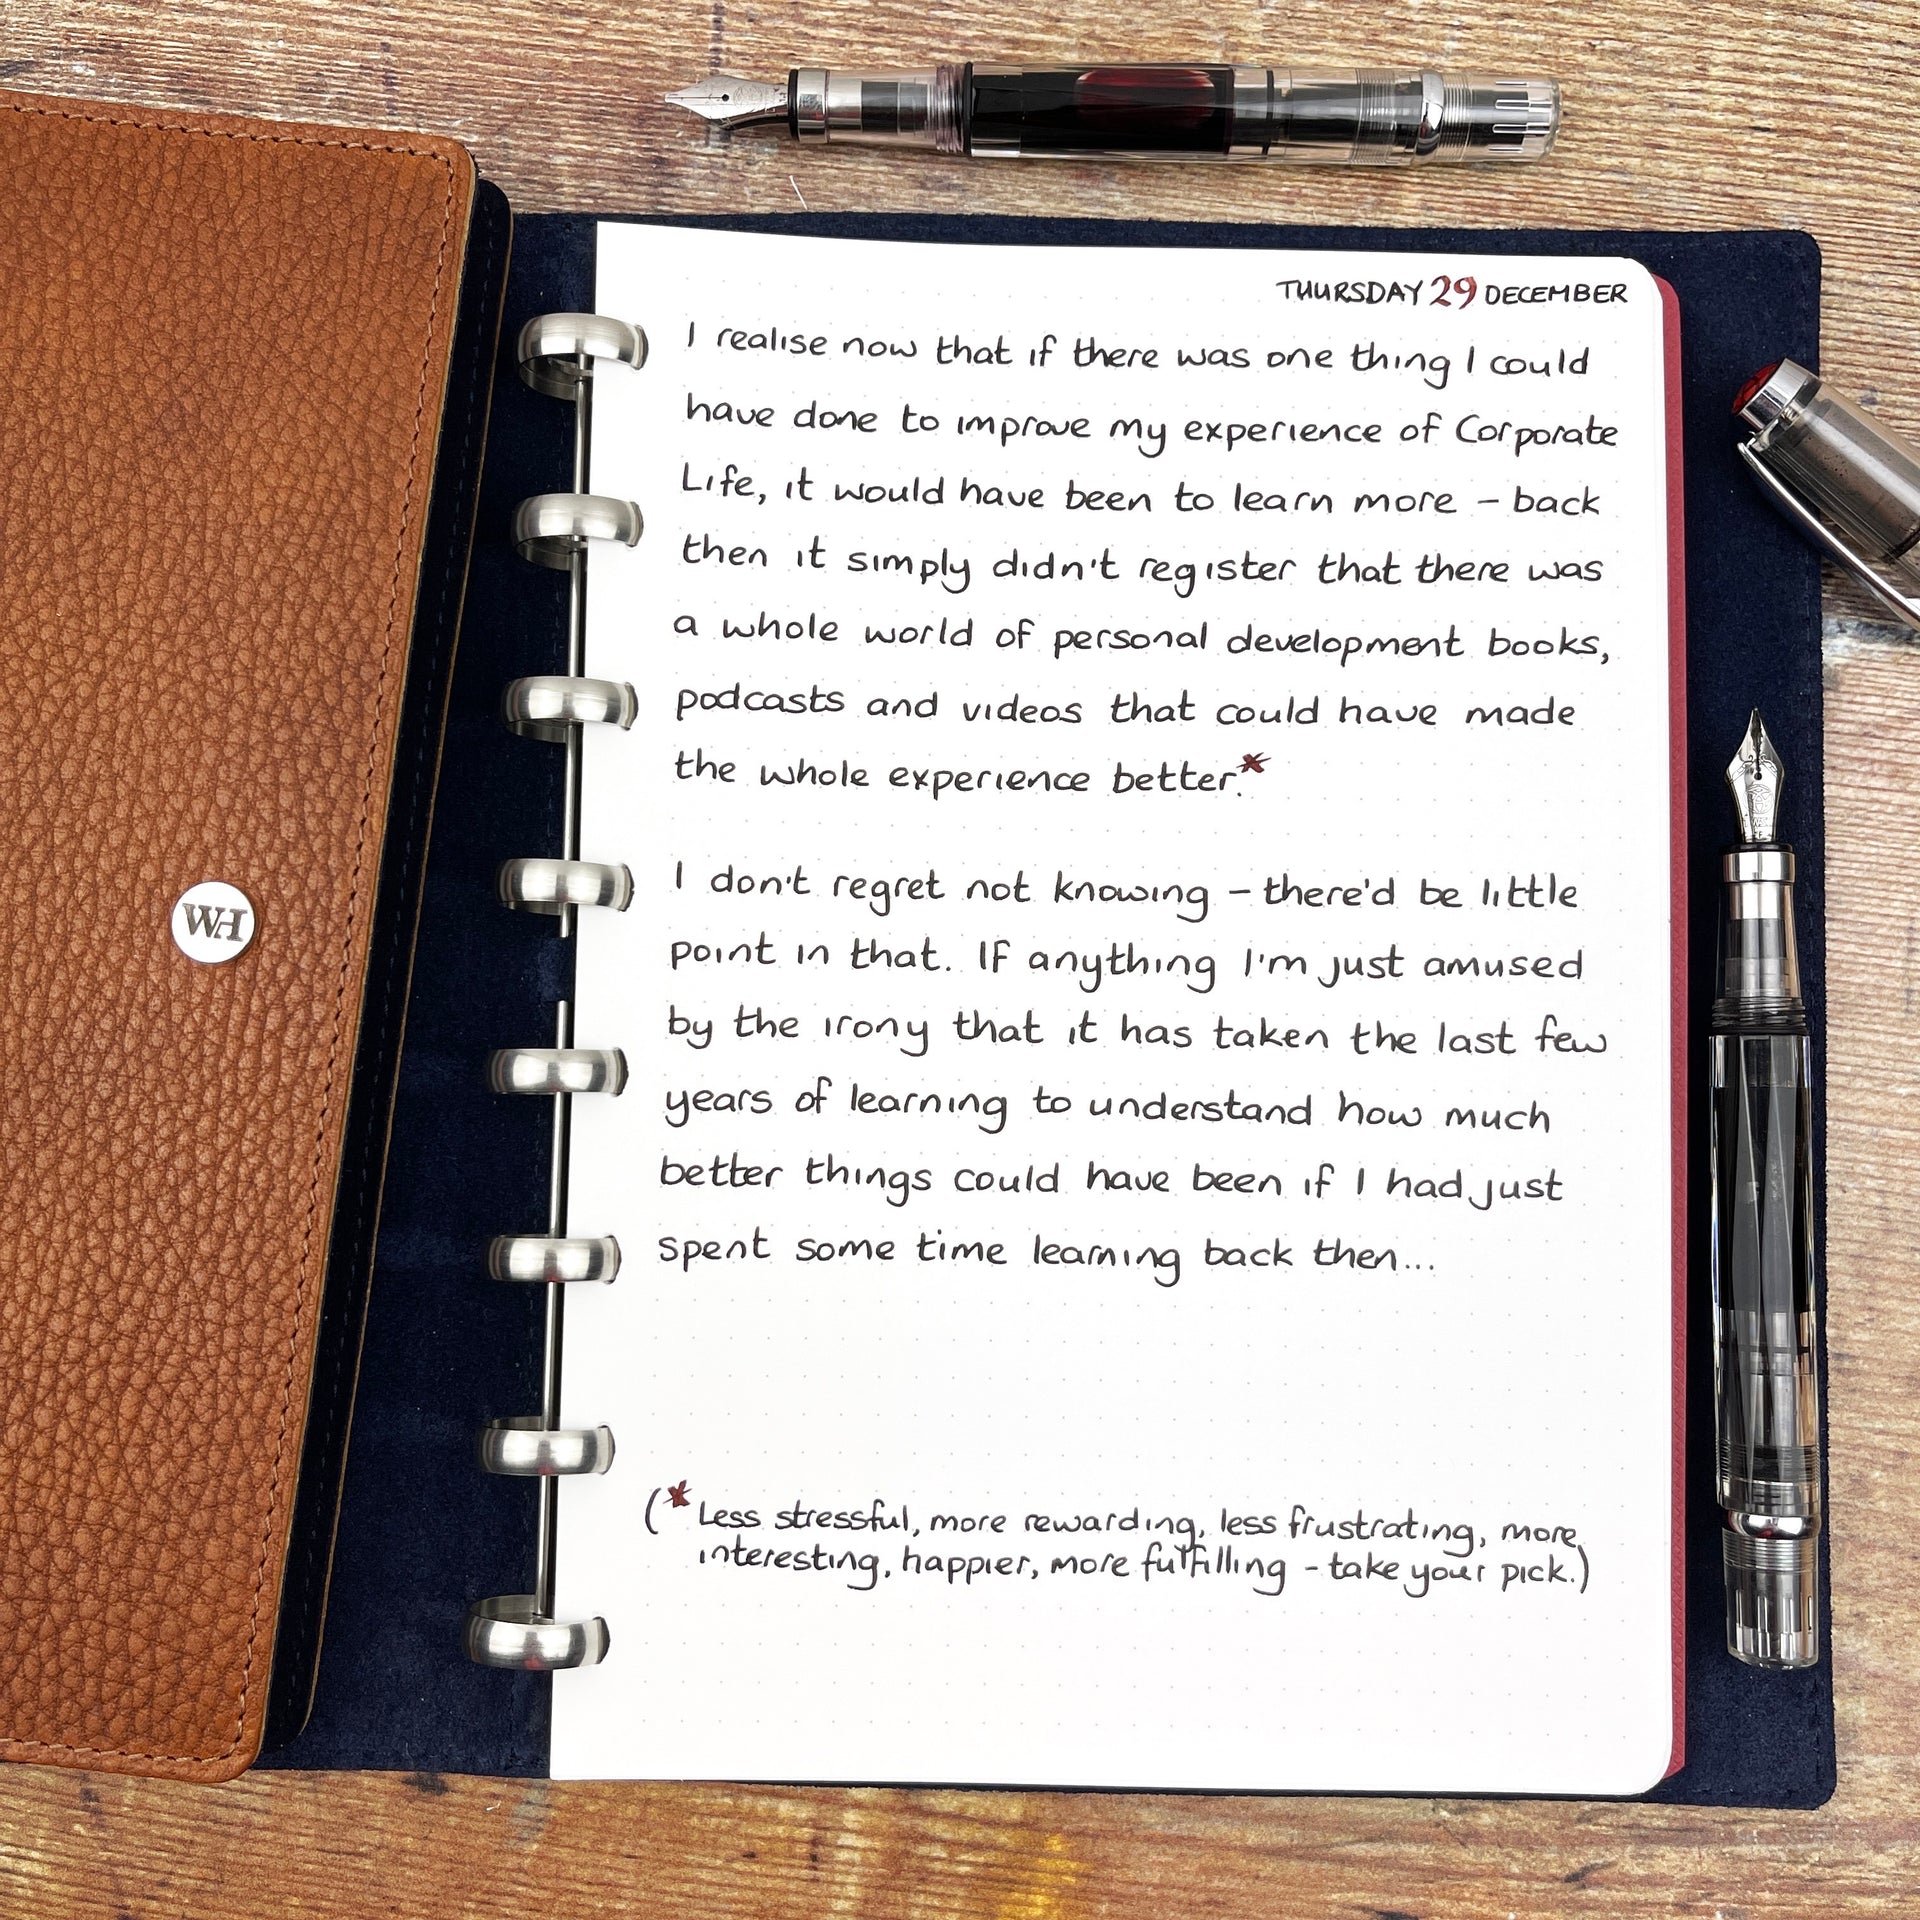 THURSDAY 29 DECEMBER
I realise now that if there was one thing I could
have done to improve my experience of Corporate
Life, it would have been to learn more – back
then it simply didn't register that there was
a whole world of personal development books,
podcasts and videos that could have made
the whole experience better.*
I don't regret not knowing – there'd be little
point in that. If anything I'm just amused
by the irony that it has taken the last few
years of learning to understand how much
better things could have been if I had just
spent some time learning back then...
(* Less stressful, more rewarding, less frustrating, more
interesting, happier, more fulfilling – take your pick.)
WH